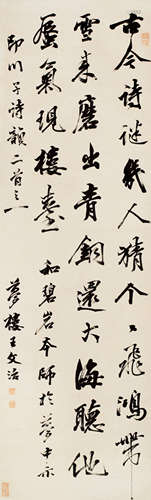 古今詩謎幾人猜个〻飛鴻帶
雪来磨出青銅還大海聽他
蜃氣現樓臺 和碧岩本師於夢中示
即川子詩韻二首之一 夢樓王文治